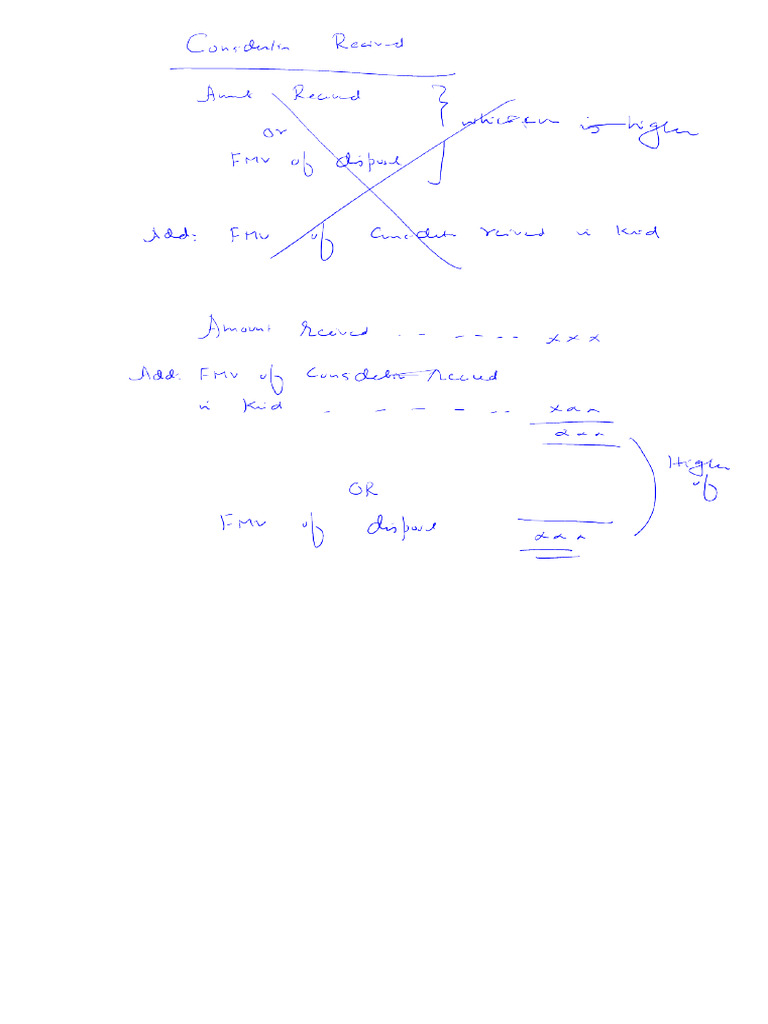 Consideration Received
Amount Received
or
whichever is higher
FMV of dispose
Add: FMV of Consideration received in kind
Amount received - - - - - - x x x
Add: FMV of Consideration received
in kind - - - - - - x x x
x x x
Higher
of
OR
FMV of dispose
x x x